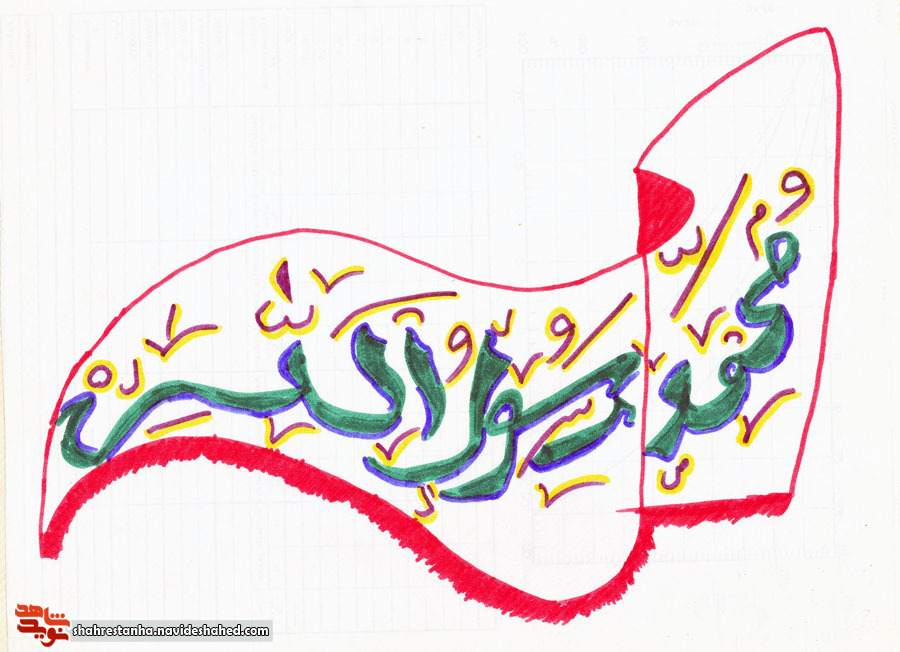 محمد رسول الله
نوید شاهد
shahrestanha.navideshahed.com